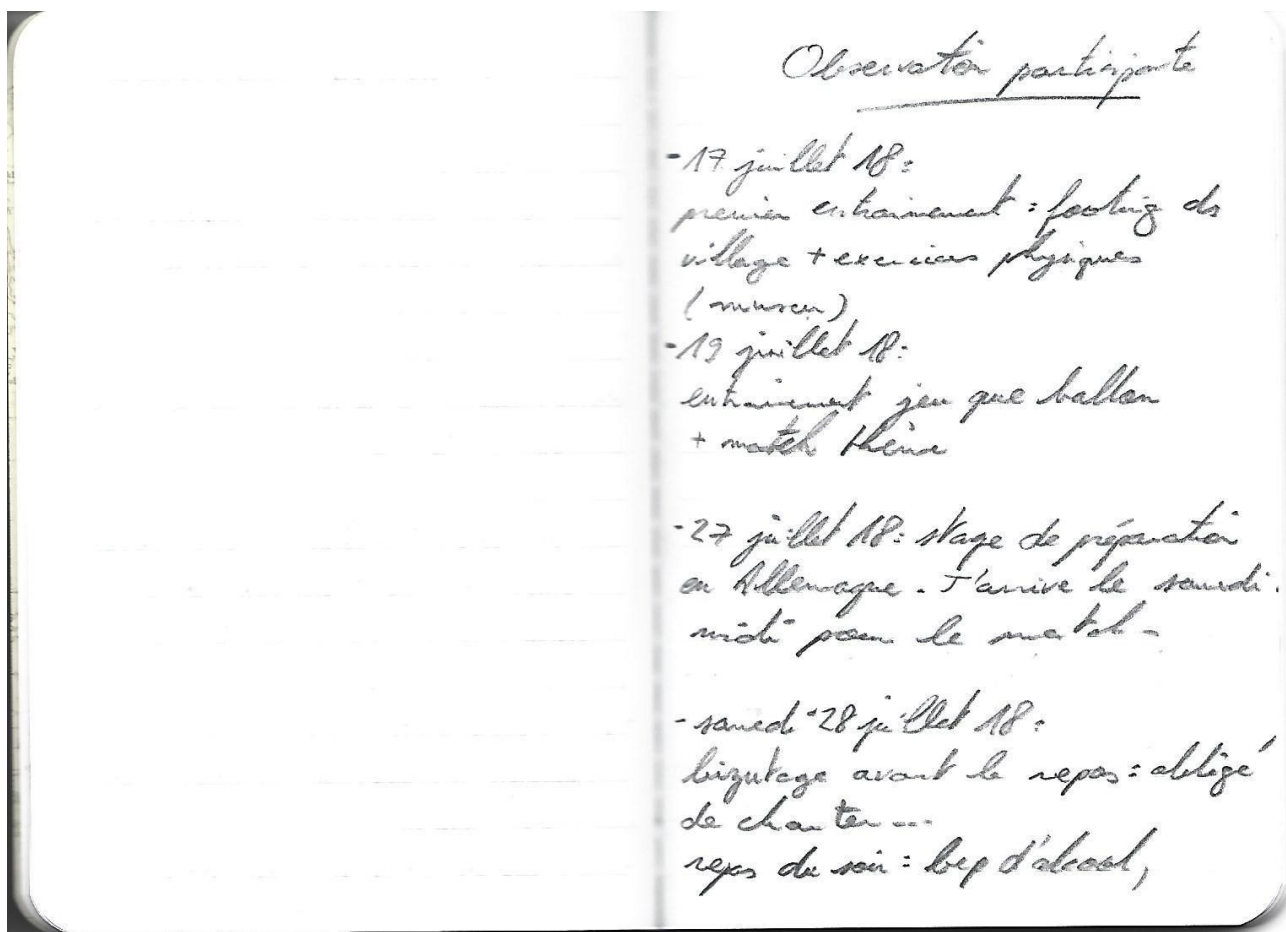 Observation participante
- 17 juillet 18 :
premier entrainement : footing ds
village + exercices physiques
(muscu)
- 19 juillet 18 :
entrainement jeu que ballon
+ match
- 27 juillet 18 : stage de préparation
en Allemagne. J'arrive le samedi
midi pour le match.
- samedi 28 juillet 18 :
bizutage avant le repas : obligé
de chanter ...
repas du soir : bcp d'alcool,